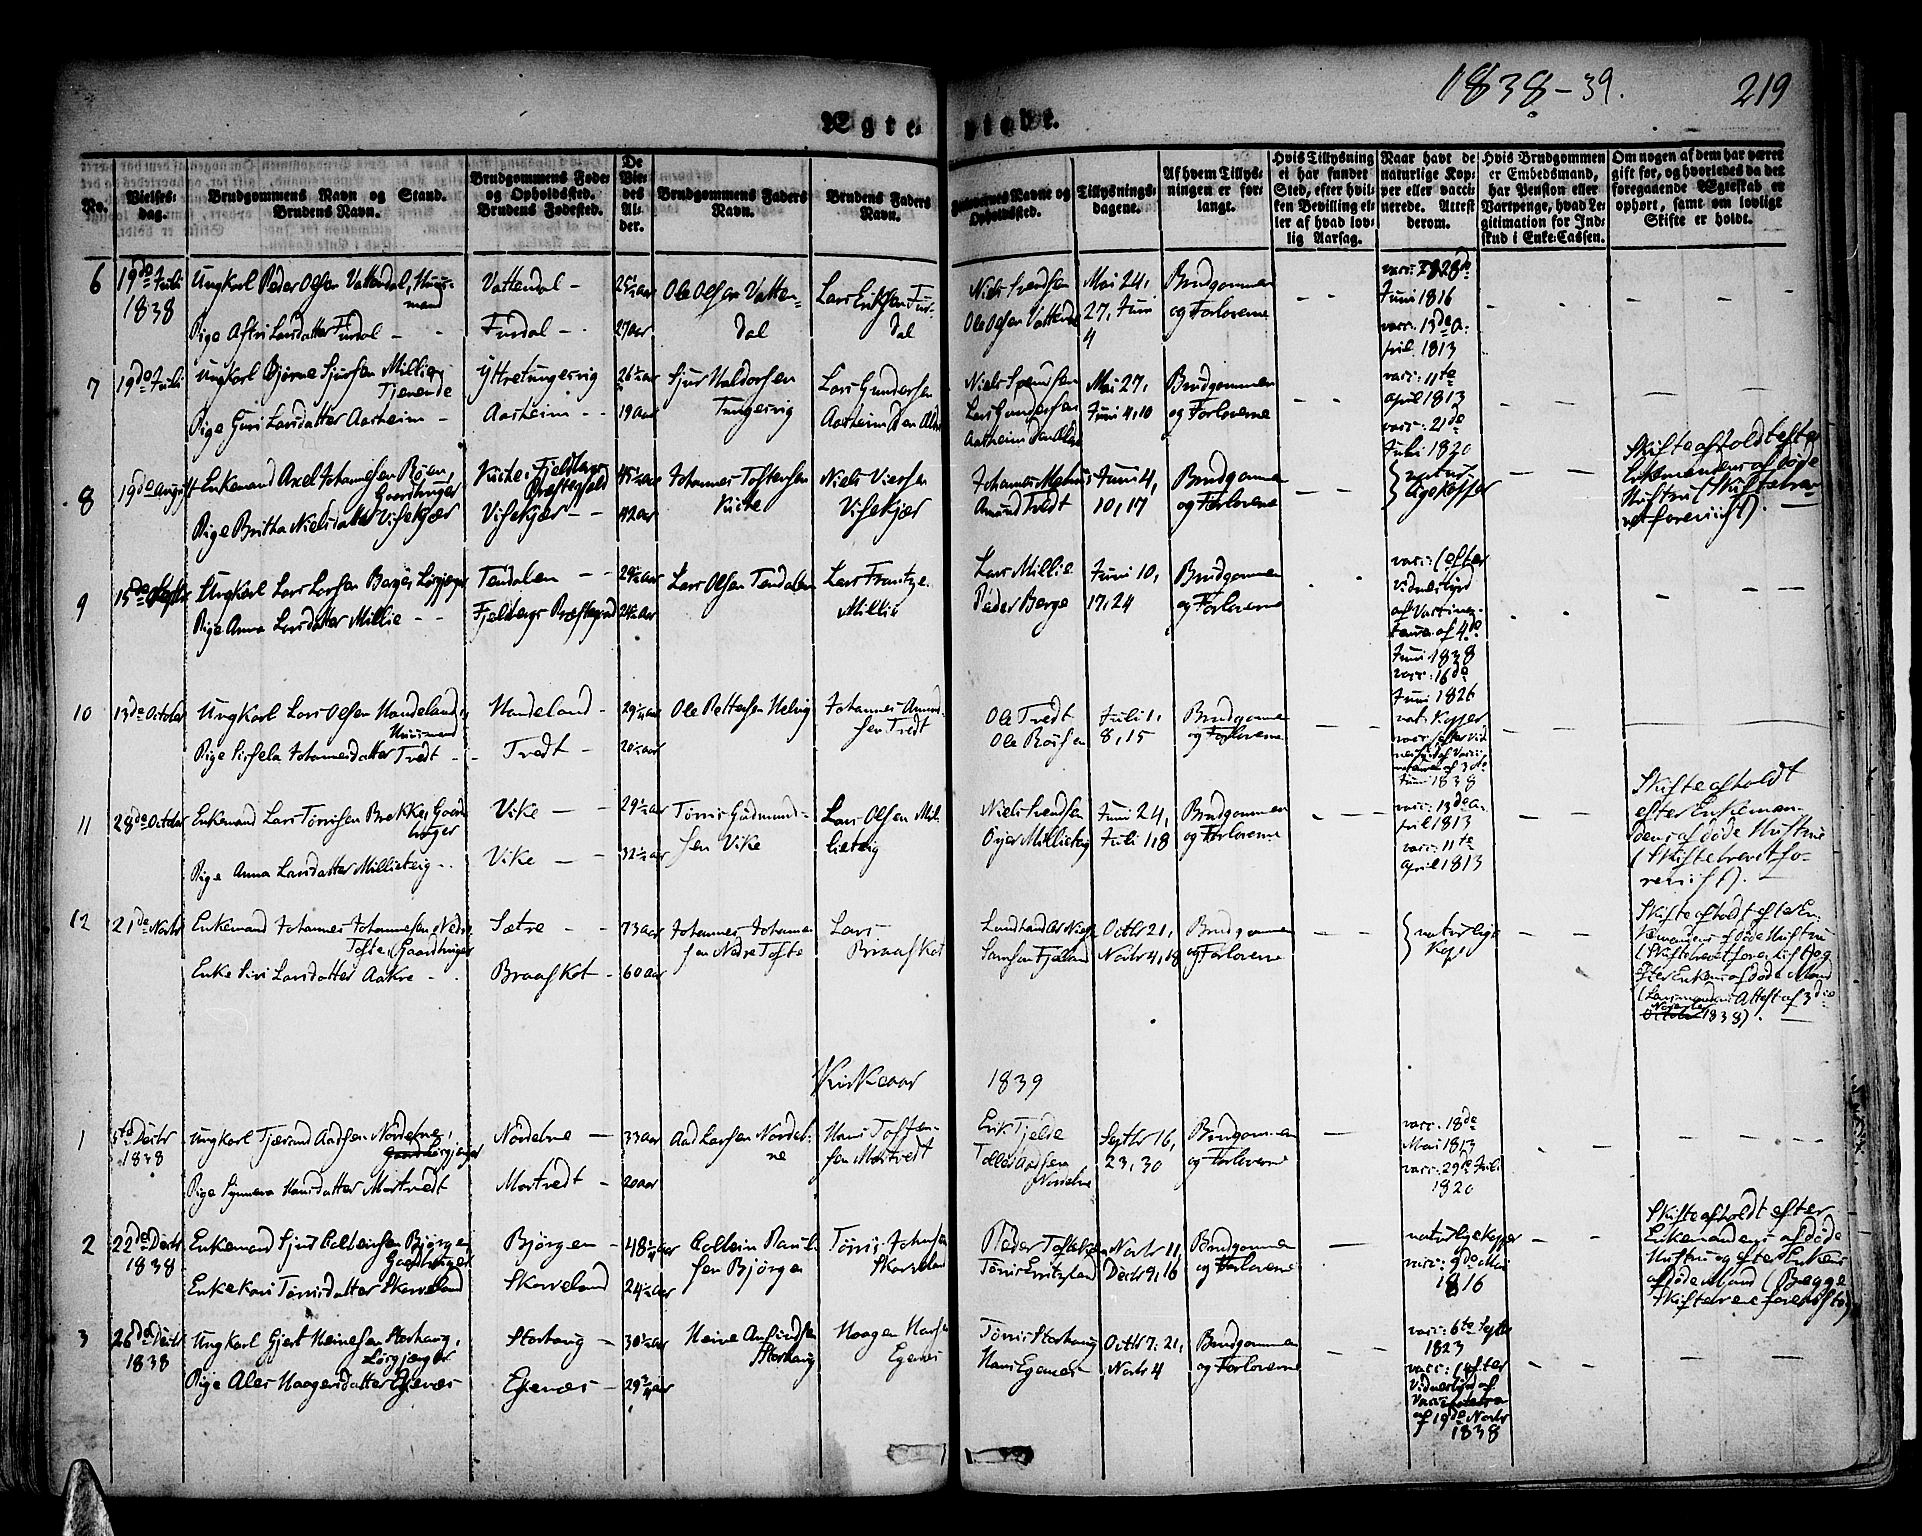 1838-39.
219
Ægte viede.
No.
Vielses-dag.
Brudgommens Navn og Stand. Brudens Navn.
Brudgommens Føde- og Opholdssted. Brudens Fødested.
De Viedes Alder.
Brudgommens Faders Navn.
Brudens Faders Navn.
Forlovernes Navne og Opholdssted.
Tillysnings-dagene.
Af hvem Tillysningen er forlangt.
Hvis Tillysning ei har fundet Sted, efter hvilken Bevilling eller af hvad lovlig Aarsag.
Naar havt de naturlige Kopper eller vaccinerede. Attest derom.
Hvis Brudgommen er Embedsmand, har Pension eller Vartpenge, hvad Legitimation for Indskud i Enke-Cassen.
Om nogen af dem har været gift før, og hvorledes da det foregaaende Ægteskab er ophørt, samt om lovligt Skifte er holdt.
6
19de Juli 1838
Ungkarl Peder Olsen Vattendal, Huusmand
Pige Astri Larsdatter Furdal
Vattendal
Furdal
25½ aar
27 aar
Ole Olsen Vattendal
Lars Eriksen Furdal
Niels Svendsen
Ole Olsen Vattendal
Mai 24, 27, Juni 4
Brudgommen og Forloverne
Juni 1816
vacc: 13de April 1813
7
19de Juli
Ungkarl Bjørne Sjursen Millie, Tjenende
Pige Guri Larsdatter Aarheim
Yttretungesvig
Aarheim
26½ aar
19 aar
Sjur Haldorsen Tungesvig
Lars Gundersen Aarheim den Ældre
Niels Svendsen
Lars Gundersen Aarheim den Ældre
Mai 27, Juni 4, 10
Brudgommen og Forloverne
vacc: 11te April 1813
vacc: 21de Juli 1820
8
19de August
Enkemand Axel Johannesen Bøen, Gaardbruger
Pige Britha Nielsdatter Visekjær
Visekjær
45½ aar
42 aar
Johannes Tostensen
Niels Viersen Visekjær
Amund Tvedt
Juni 4, 10, 17
Brudgommen og Forloverne
naturlige Kopper
Skifte afholdt efter Enkemandens afdøde Hustru (Skiftebrevet foreviist).
9
15de Septbr
Ungkarl Lars Larsen Berge, Løsgjenger
Pige Anna Larsdatter Millie
Tendalen
Fjelbergs Præstegjeld
29½ aar
24½ aar
Lars Olsen Tendalen
Lars Frantzen Millie
Lars Millie
Peder Berge
Juni 10, 17, 24
Brudgommen og Forloverne
vacc: (efter Vidnesbyrd af Vaccinateuren af 4de Juni 1838
vacc: 16de Juni 1826
10
13de October
Ungkarl Lars Olsen Handeland, Huusmand
Pige Sissela Johannesdatter Tvedt
Handeland
Tvedt
29¼ aar
20½ aar
Ole Pettersen Helvig
Johannes Amundsen Tvedt
Ole Tvedt
Ole Roisen
Juli 1, 8, 15
Brudgommen og Forloverne
nat. Kopper
vacc: (efter Vidnesbyrd af Vaccinateuren af 30te Juni 1838
11
28de October
Enkemand Lars Tørrisen Brekke, Gaardbruger
Pige Anna Larsdatter Millieteig
Vike
Vike
29½ aar
32½ aar
Tørris Gudmundsen Vike
Lars Olsen Millieteig
Niels Svendsen
Øyer Millieteig
Juni 24, Juli 1, 8
Brudgommen og Forloverne
vacc: 13de April 1813
vacc: 11te April 1813
Skifte afholdt efter Enkemandens afdøde Hustru (Skiftebrevet foreviist).
12
21de Novbr
Enkemand Johannes Johannesen Nedre Tofte, Gaardbruger
Enke Siri Larsdatter Aakre
Sætre
Braaskot
73 aar
60 aar
Johannes Johannesen Nedre Tofte
Lars Braaskot
Samsen Fjeland
Octbr 21, Novbr 4, 18
Brudgommen og Forloverne
naturlige Kopper
Skifte afholdt efter Enkemandens afdøde Hustru (Skiftebrevet foreviist) og efter Enkens afdøde Mand (Lensmandens Attest af 3die November 1838).
Kirkeaar 1839
1
5te Decbr 1838
Ungkarl Tjerand Aadsen Nordelne, Løsgjenger
Pige Synneva Hansdatter Mortvedt
Nordelne
Mortvedt
33 aar
20 aar
Aad Larsen Nordelne
Hans Tostensen Mortvedt
Erik Tjelde
Tollef Aadsen Nordelne
Septbr 16, 23, 30
Brudgommen og Forloverne
vacc. 18de Mai 1813
vacc: 29de Juli 1820
2
22de Decbr 1838
Enkemand Sjur Colbeinsen Bjørgen, Gaardbruger
Enke Kari Tørrisdatter Skarveland
Bjørgen
Skarveland
48¼ aar
24½ aar
Colbein Paulsen Bjørgen
Tørris Johnsen Skarveland
Peder
Tørris
Novbr 11, Decbr 9, 16
Brudgommen og Forloverne
naturlige Kopper
vacc: 9de Mai 1816
Skifte afholdt efter Enkemandens afdøde Hustru og efter Enkens afdøde Mand (Begge Skiftebrevene foreviist).
3
26de Decbr 1838
Ungkarl Gjert Heinesen Storhaug, Løsgjenger
Pige Ales Haagensdatter Egenes
Storhaug
Egenes
30½ aar
29¾ aar
Heine Amundsen Storhaug
Haagen Hansen Egenes
Tørris Storhaug
Hans Egenes
Octbr 7, 21, Novbr 4
Brudgommen og Forloverne
vacc: 6te Septbr 1823
vacc: (efter Vidnesbyrd af Vaccinateuren af 19de Novbr 1838